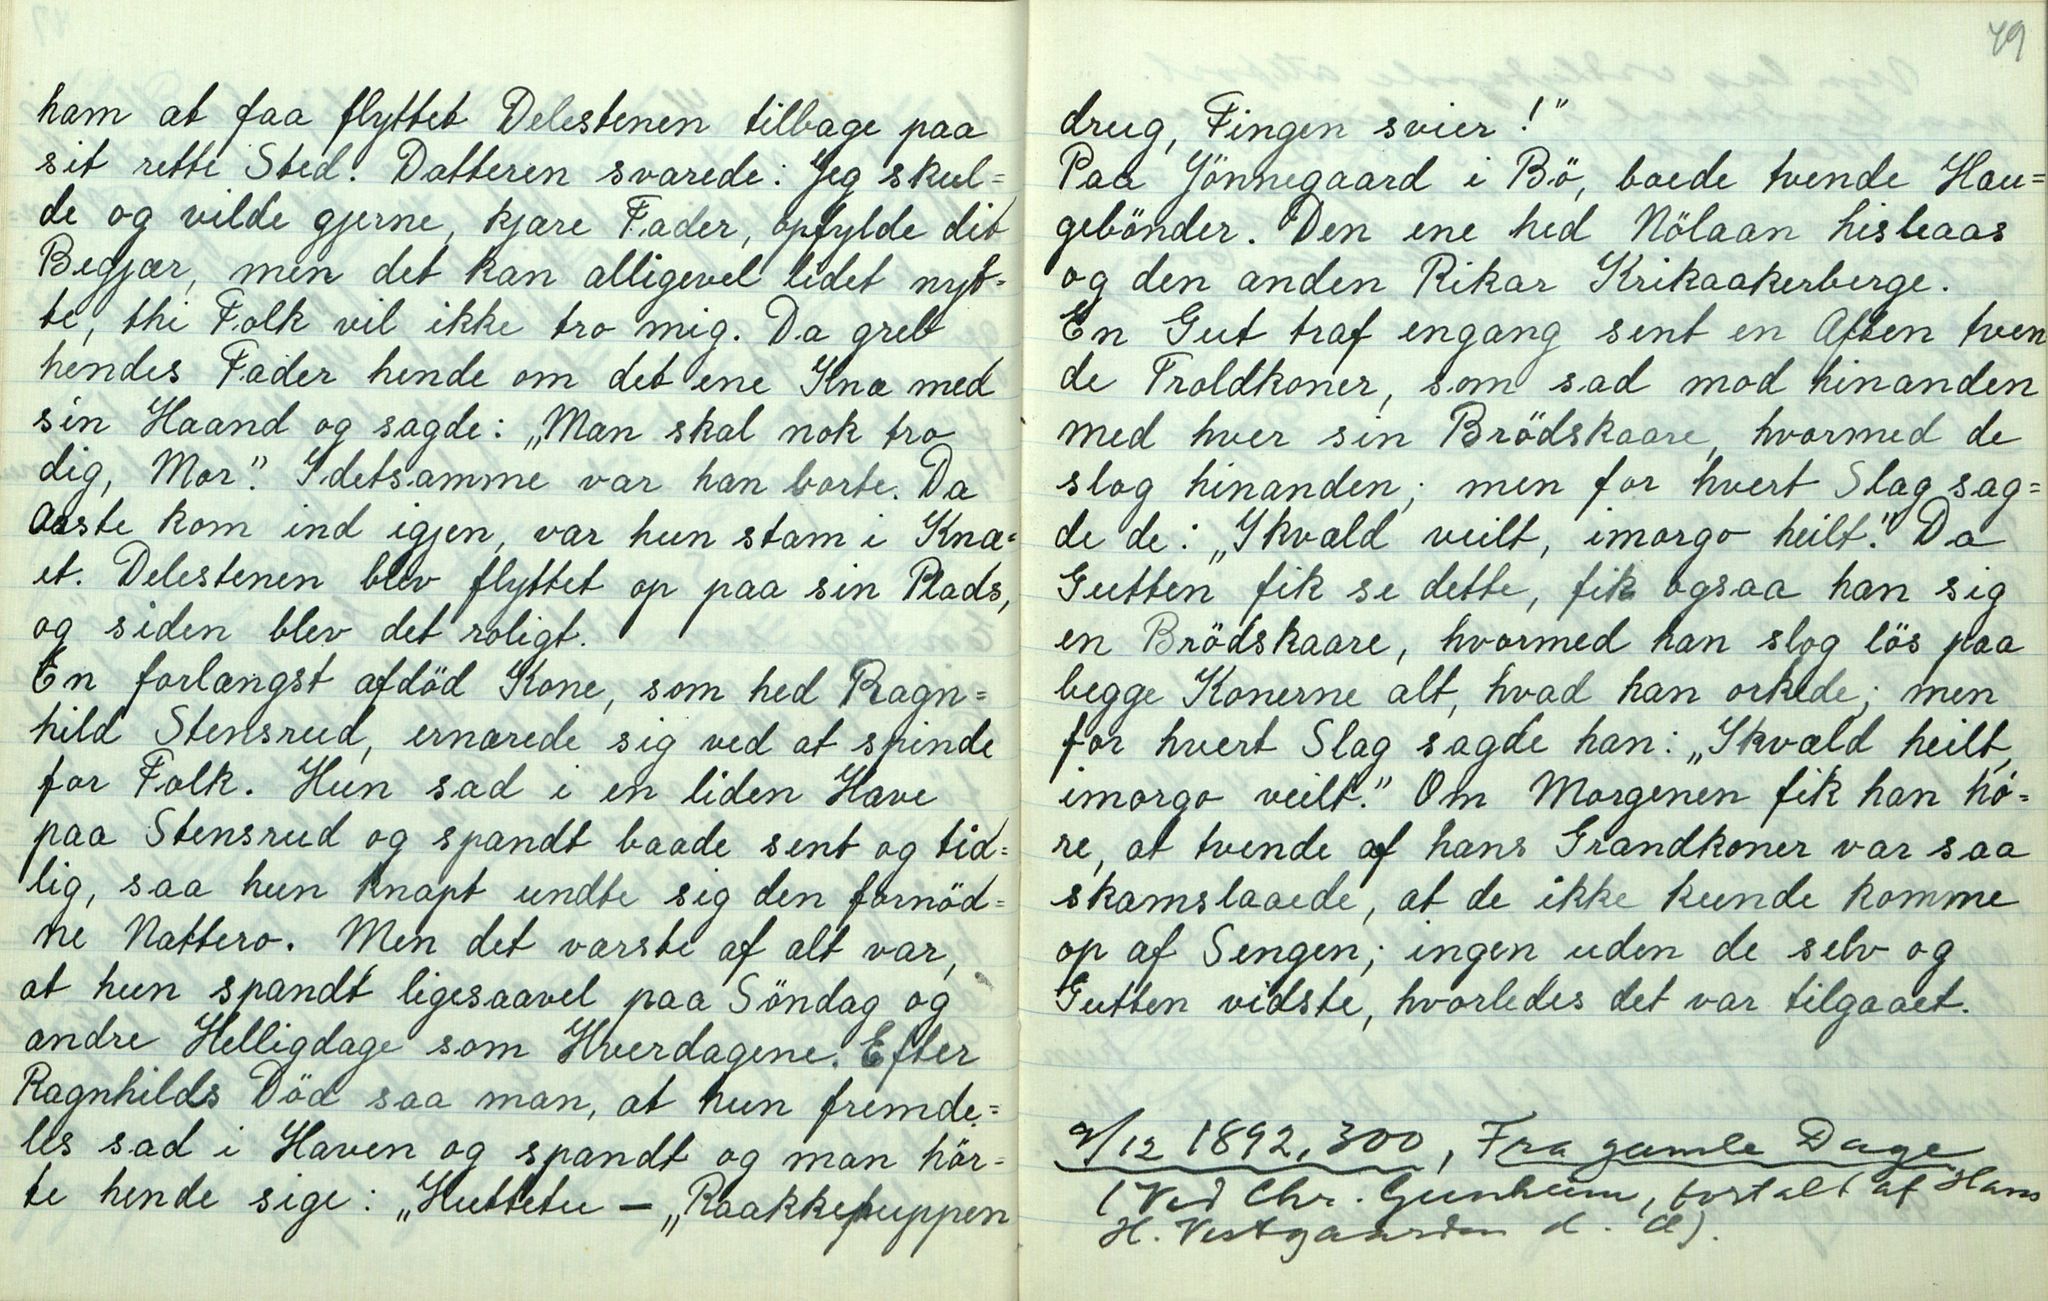 ham at faa flyttet Delestenen tilbage paa
sit rette Sted. Datteren svarede: Jeg skul=
de og vilde gjerne, kjære Fader, opfylde dit
Begjær, men det kan alligevel lidet nyt=
te, thi Folk vil ikke tro mig. Da greb
hendes Fader hende om det ene Knæ med
sin Haand og sagde: „Man skal nok tro
dig, Mor." I detsamme var han borte. Da
Aaste kom ind igjen, var hun stam i Knæ=
et. Delestenen blev flyttet op paa sin Plads,
og siden blev det roligt.
En forlængst afdöd Kone, som hed Ragn=
hild Stensrud, ernærede sig ved at spinde
for Folk. Hun sad i en liden Have
paa Stensrud og spandt baade sent og tid=
lig, saa hun knapt undte sig den fornöd=
ne Nattero. Men det værste af alt var,
at hun spandt ligesaavel paa Söndag og
andre Helligdage som Hverdagene. Efter
Ragnhilds Död saa man, at hun fremde=
les sad i Haven og spandt og man hör=
te hende sige: „Huttetu — „Raakkepuppen
49
drug, Fingen svier!"
Paa Jönnegaard i Bö, boede tvende Hau=
gebönder. Den ene hed Nölaan hisleaas
og den anden Rikar Krikaakerberge.
En Gut traf engang sent en Aften tven
de Troldkoner, som sad mod hinanden
med hver sin Brödskaare, hvormed de
slog hinanden; men for hvert Slag sag=
de de: „Ikvæld veilt, imorgo heilt." Da
Gutten fik se dette, fik ogsaa han sig
en Brödskaare, hvormed han slog lös paa
begge Konerne alt, hvad han orkede; men
for hvert Slag sagde han: „Ikvæld heilt,
imorgo veilt." Om Morgenen fik han hö=
re, at tvende af hans Grandkoner var saa
skamslaaede, at de ikke kunde komme
op af Sengen; ingen uden de selv og
Gutten vidste, hvorledes det var tilgaaet.
9/12 1892, 300, Fra gamle Dage
(Ved Chr. Gunheim, fortalt af Hans
H. Vestgaarden d. æ).